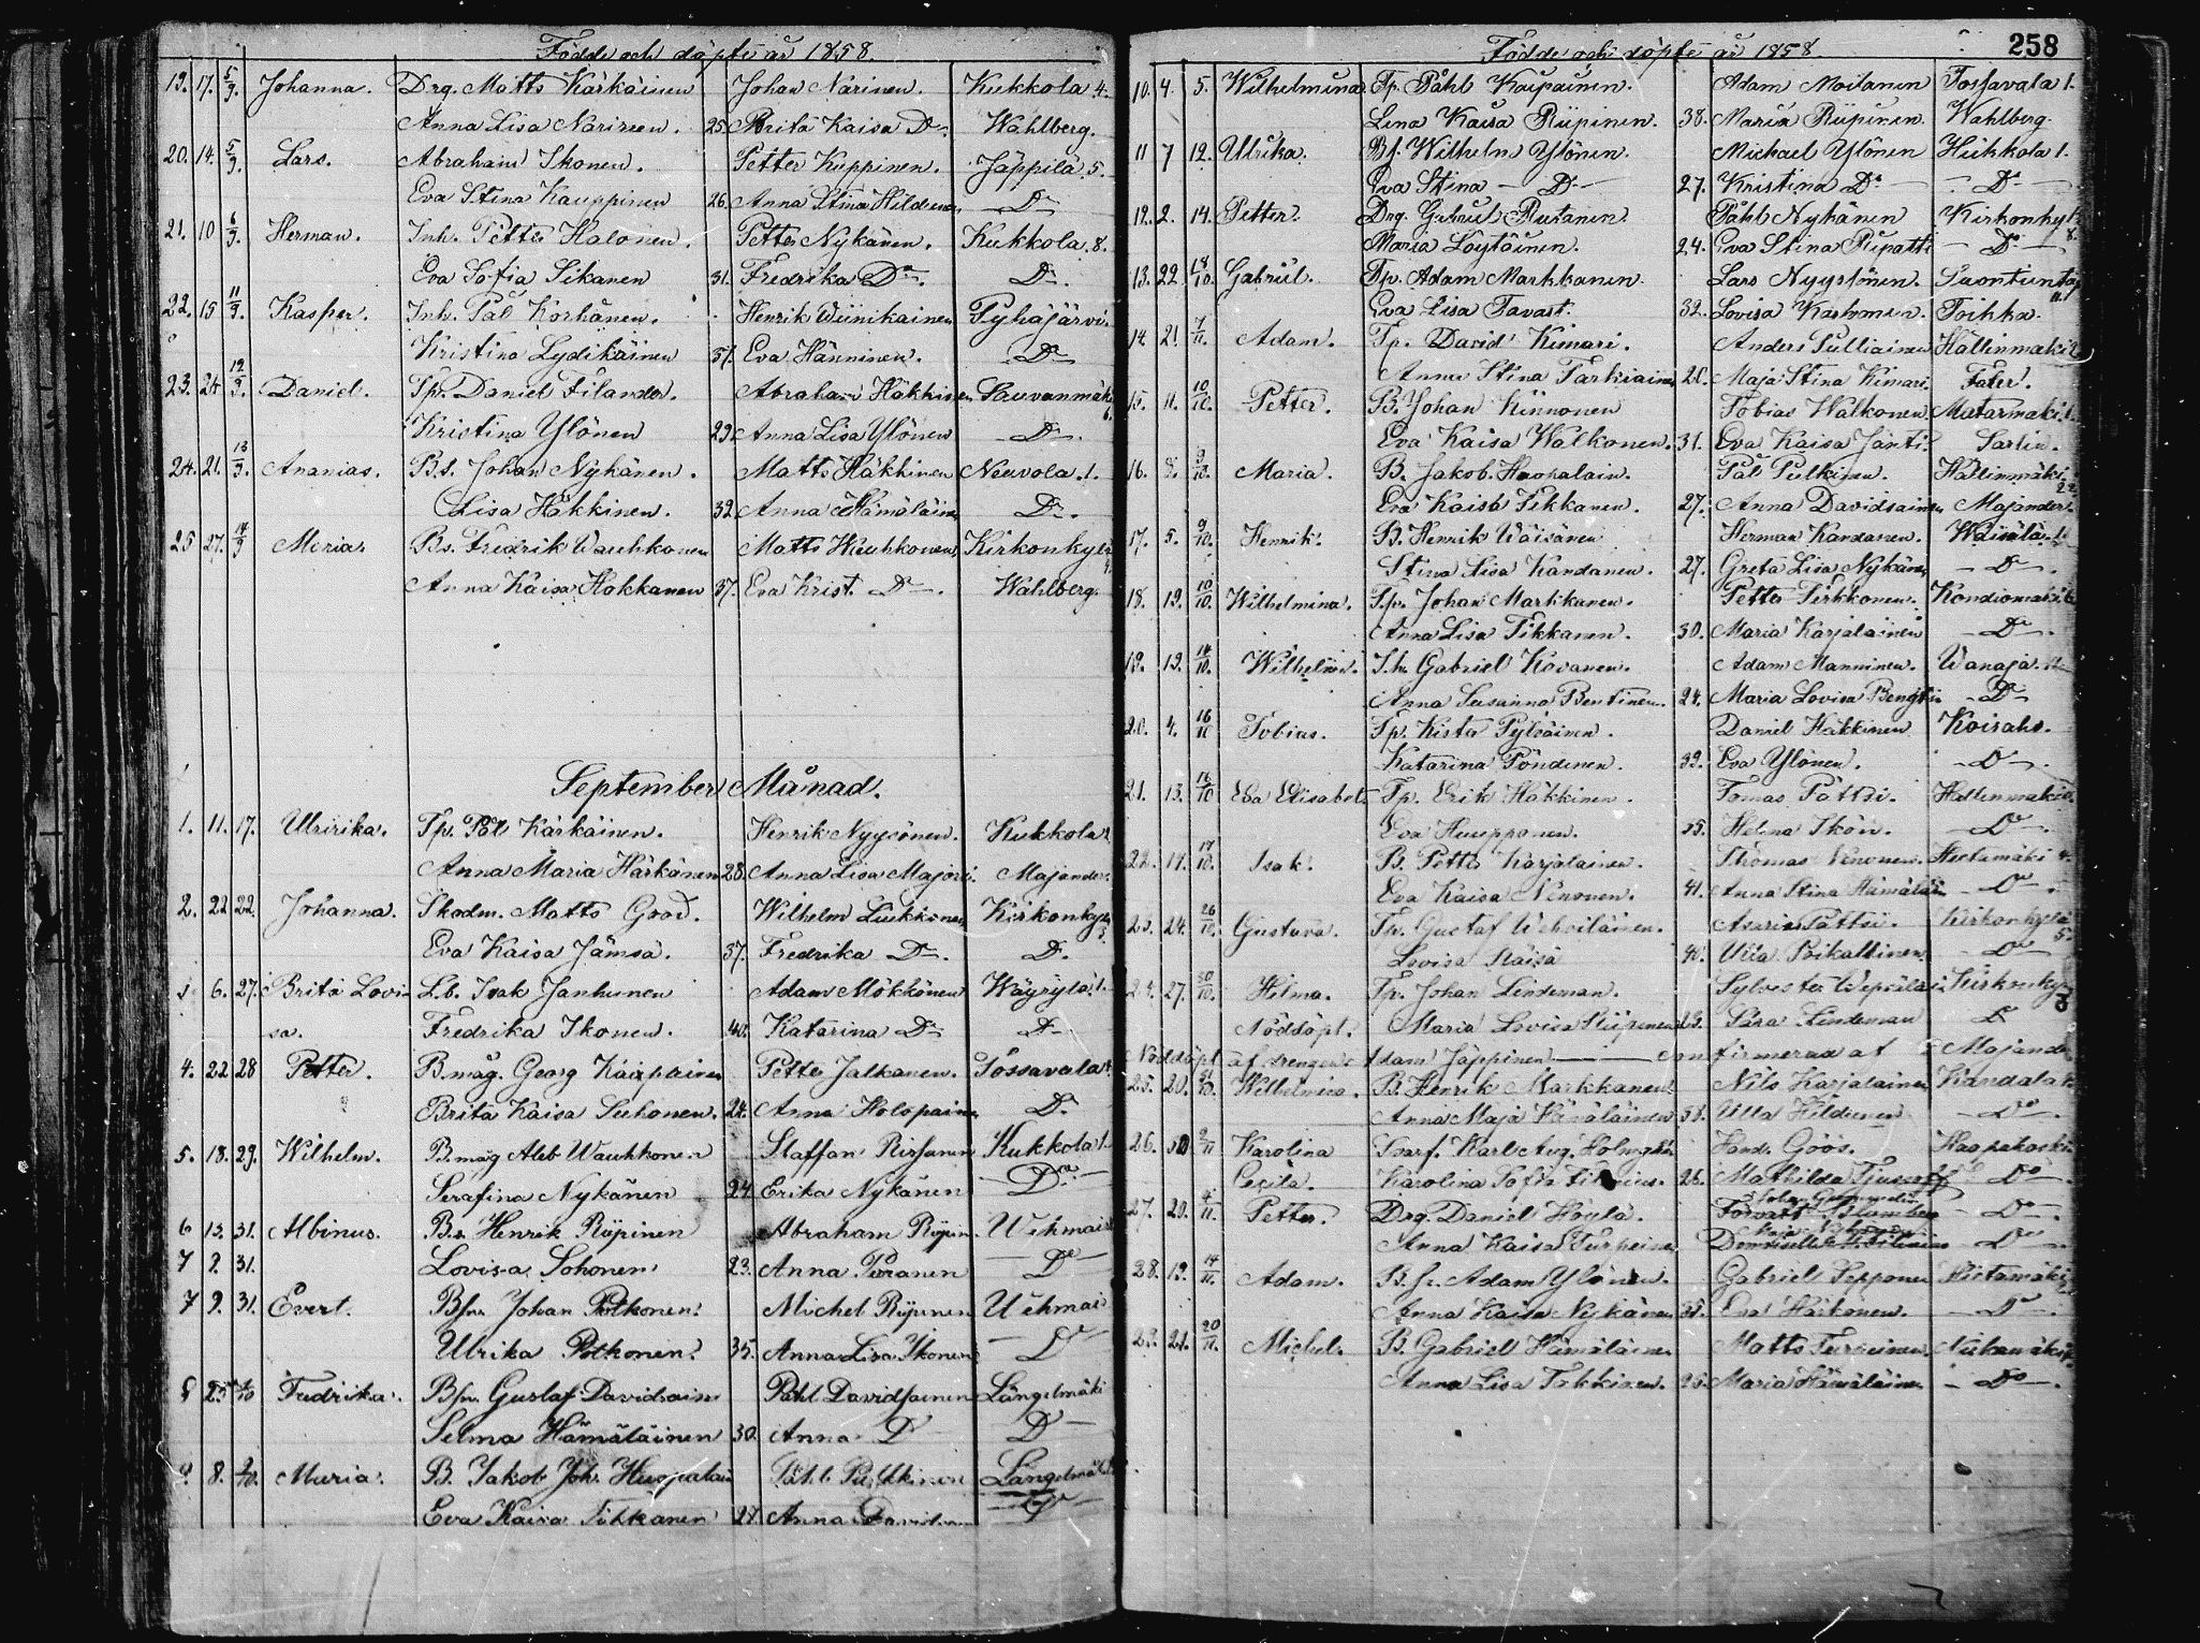 Födde och döpte år 1858.
19. 17. 5/9. Johanna. Drg. Matts Kärkäinen Johan Narinen. Kukkola 4.
Anna Lisa Narinen. 25. Brita Kaisa Do. Wahlberg.
20. 14. 5/9. Lars. Abraham Ikonen. Petter Kuppinen. Jäppilä 5.
Eva Stina Kauppinen 26. Anna Stina Hildunen Do
21. 10 6/9. Herman. Inh. Petter Halonen. Petter Nykänen. Kukkola 8.
Eva Sofia Sikanen 31. Fredrika Do. Do.
22. 15 11/9. Kasper. Inh. Pål Korhänen. Henrik Winikainen Pyhäjärvi
Kristina Lydikäinen 37. Eva Hänninen. Do
23. 24 12/9. Daniel. Tp. Daniel Filander. Abraham Häkkinen Sauvanmäki 6.
Kristina Ylönen 29. Anna Lisa Ylönen Do.
24. 21. 13/9 Ananias. Bs. Johan Nykänen. Matts Häkkinen Neuvola 1.
Lisa Häkkinen. 32 Anna Hämäläinen Do.
25 27. 14/9 Maria. Bs. Fredrik Wauhkonen Matts Wauhkonen, Kirkonkylä 4.
Anna Kaisa Hokkanen 37. Eva Krist. Do. Wahlberg.
September Månad.
1. 11. 17. Ulririka. Tp. Pål Kärkäinen. Henrik Nyysönen. Kukkola
Anna Maria Härkänen 28. Anna Lisa Majori. Majander.
2. 22 22. Johanna. Skodm. Matts Grod. Wilhelm Liukkonen Kirkonkylä 3.
Eva Kaisa Jämsa. 37. Fredrika Do. Do.
6. 27. Brita Lovi- Lb. Isak Janhunen Adam Mökkönen Wäyrylä 1.
sa. Fredrika Ikonen. 40. Katarina Do Do
4. 22 28 Petter. B.måg. Georg Kaipainen Petter Jalkanen. Tossavala
Brita Kaisa Suhonen. 24. Anna Holopainen Do.
5. 18. 29. Wilhelm. B.måg Aleb Wauhkonen Staffan Kukkola 1.
Serafina Nykänen 24 Erika Nykänen Do.
6 13. 31. Albinus. B.s. Henrik Riipinen Abraham Riipin. Wehmais
7 2. 31. Lovisa Sohonen 23. Anna Puranen Do
7 9. 31. Evert. Bfn. Johan Potkonen. Michel Riipinen Wehmais
Ulrika Potkonen. 35. Anna Lisa Ikonen Do
8 25 Fredrika. Bfn. Gustaf Davidsain Påhl Davidsainen Längelmäki
Selma Hämäläinen 30. Anna Do Do
9 8. 2/10. Maria. B. Jakob Joh. Huopalain Påhl Pulkkinen Längelmäki
Eva Kaisa Tikkanen 27. Anna Davidsain Do
Födde och döpte år 1858. 258
10. 4. 5. Wilhelmina. Tp. Påhl Kaupainen. Adam Moilanen Tossavala 1.
Lena Kaisa Riipinen. 38. Maria Riipinen. Wahlberg.
11 7 12. Ulrika. Bf. Wilhelm Ylönen. Michael Ylönen Hukkola 1.
Eva Stina Do 27. Kristina Do Do
12. 2. 14. Petter. Drg. Gabriel Rutanen. Påhl Nykänen Kirkonkyl. 8.
Maria Löytäinen. 24. Eva Stina Do
13. 22 18/10. Gabriel. Tp. Adam Markkanen. Lars Nyysönen. Suontientaus 11.
Eva Lisa Tavast. 32. Lovisa Toikka.
14. 21 7/11. Adam. Tp. David Kimari. Anders Pulliainen Hällinmäki 2
Anna Stina Tarkiainen 20. Maja Stina Kimari. Fater.
15. 11. 10/10. Petter. B. Johan Kinnonen Tobias Walkonen Matarmäki 1.
Eva Kaisa Walkonen. 31. Eva Kaisa Jänti. Sarlin.
16. 8. 9/10. Maria. B. Jakob Huopalain. Pål Pulkinen. Hällinmäki 22
Eva Kaisa Tikkanen. 27. Anna Davidsainen Majander.
17. 5. 9/10. Henrik. B. Henrik Wäisänen Herman Kandanen. Wäisälä 1.
Stina Lisa Kandanen. 27. Greta Lisa Nykänen Do.
18. 19. 10/10. Wilhelmina. Tp. Johan Markkanen. Petter Pirkkonen. Kondiomäki 6
Anna Lisa Tikkanen. 30. Maria Karjalainen Do.
19. 19. 14/10. Wilhelm. I.h. Gabriel Kovanen. Adam Manninen. Wanaja
Anna Susanna Bentinen. 24. Maria Lovisa Do
20. 4. 16/10 Tobias. Tp. Kista Pylväinen. Daniel Häkkinen Koisaho.
Katarina Pöndinen. 39. Eva Ylönen. Do.
21. 13. 16/10 Eva Elisabet. Tp. Erik Häkkinen. Tomas Pättsi. Hällinmäki
Eva Huupponen. 35. Helena Ikön. Do
22. 17. 17/10. Isak. B. Petter Karjalainen. Thomas Nenonen. Hietamäki 4.
Eva Kaisa Nenonen. 41. Anna Stina Hämäläin Do
23. 24. 26/10. Gustava. Th. Gustaf Wehviläinen. Asarias Pättsi. Kirkonkylä 5
Lovisa Räisä 41. Ulla Poikallinen. Do
24. 27. 30/10. Hilma. Tp. Johan Lindeman. Sylvester Wepsäläin Kirkonky. 8
Nöddöpt. Maria Lovisa Riipinen 23. Sara Lindeman Do
Nöddöpt af drengen Adam Jäppinen confirmerad af Majander
25. 20. 31/10. Wilhelmina. B. Henrik Markkanen. Nils Karjalainen Kandala
Anna Maja Hämäläinen 38. Ulla Hildunen Do
26. 30 2/11 Karolina Karl Aug. Holmgren Hand. Göös. Haapakoski
Cecilia. Karolina Sofia 26. Mathilda Do
27. 20. 4/11. Petter. Drg. Daniel Höylä. Do.
Anna Kaisa Turpeinen Do
28. 19. 14/11. Adam. B.fr. Adam Ylönen. Gabriel Sepponen Hietamäki
Anna Kaisa Nykänen 35. Eva Härkönen. Do
29. 21. 20/11. Michel. B. Gabriel Hämäläinen Matts Turpeinen. Niskamäki
Anna Lisa Tokkinen. 25. Maria Hämäläinen Do.